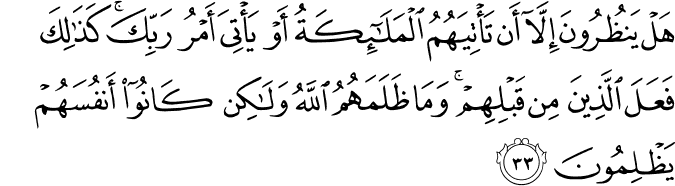 هَلْ يَنظُرُونَ إِلَّآ أَن تَأْتِيَهُمُ ٱلْمَلَـٰٓئِكَةُ أَوْ يَأْتِىَ أَمْرُ رَبِّكَ ۚ كَذَٰلِكَ
فَعَلَ ٱلَّذِينَ مِن قَبْلِهِمْ ۚ وَمَا ظَلَمَهُمُ ٱللَّهُ وَلَـٰكِن كَانُوٓا۟ أَنفُسَهُمْ
يَظْلِمُونَ ٣٣